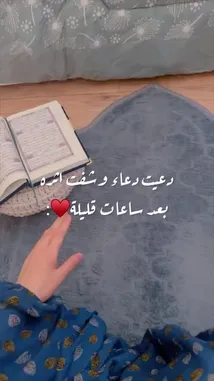 دعيت دعاء وشفت اثره
بعد ساعات قليلة♥️: